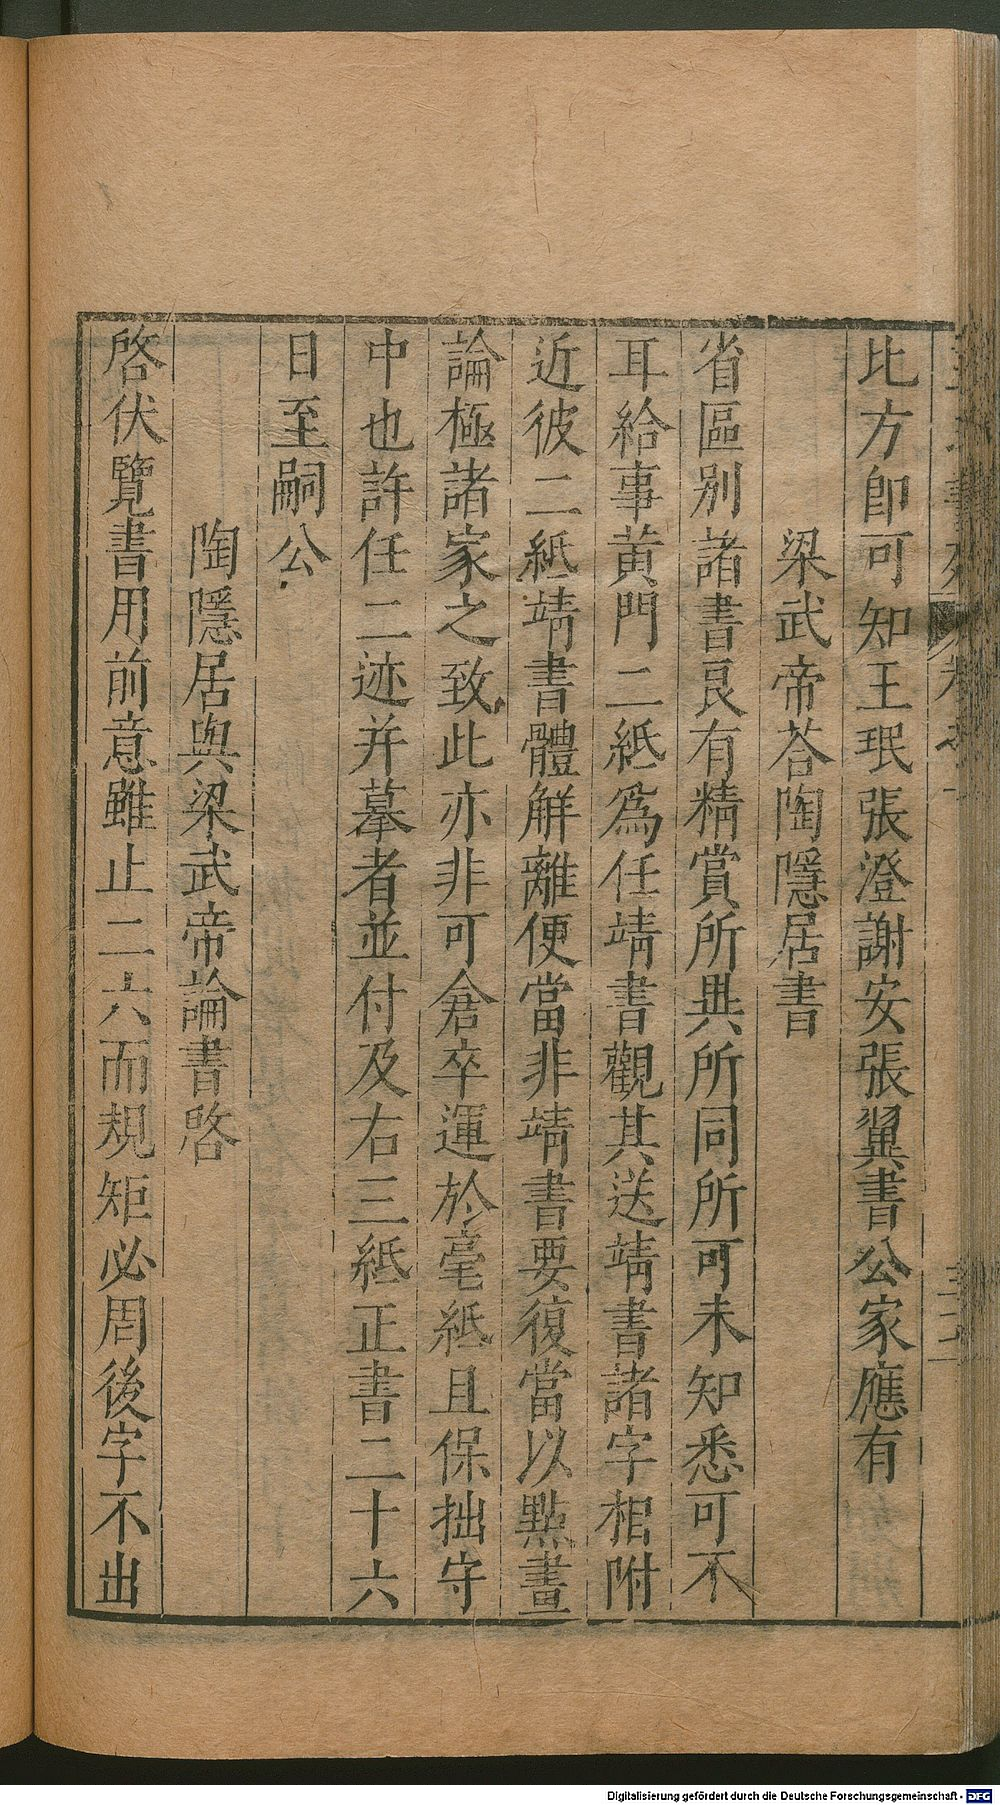 比方即可知王珉張澄謝安張翼書公家應有
梁武帝荅陶隱居書
省區別諸書良有精賞所異所同所可未知悉可不
耳給事黃門二紙爲任靖書觀其送靖書諸字相附
近彼二紙靖書體解離便當非靖書要復當以點畫
論極諸家之致此亦非可倉卒運於毫紙且保拙守
中也許任二迹并摹者並付及右三紙正書二十六
日至嗣公
陶隱居與梁武帝論書啓
啓伏覽書用前意雖止二六而規矩必周後字不出
Digitalisierung gefördert durch die Deutsche Forschungsgemeinschaft - DFG